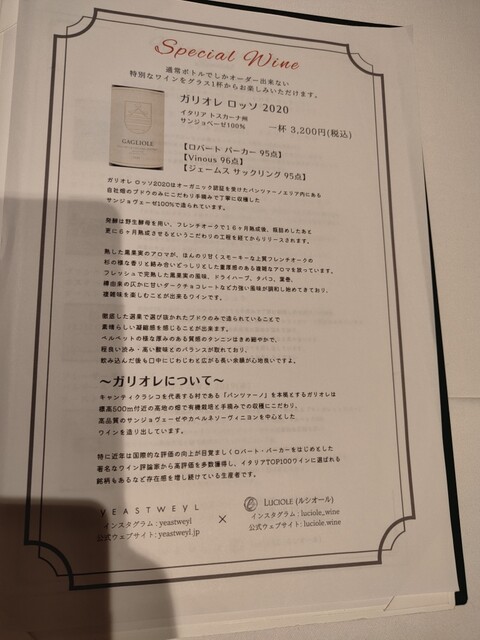 Special Wine
通常ボトルでしかオーダー出来ない
特別なワインをグラス1杯からお楽しみいただけます。
GAGLIOLE
ガリオレ ロッソ 2020
イタリア トスカーナ州
サンジョベーゼ100%
一杯 3,200円(税込)
【ロバート パーカー 95点】
【Vinous 96点】
【ジェームス サックリング 95点】
ガリオレ ロッソ2020はオーガニック認証を受けたパンツァーノエリア内にある
自社畑のブドウのみにこだわり手摘みで丁寧に収穫した
サンジョヴェーゼ100%で造られています。
発酵は野生酵母を用い、フレンチオークで16ヶ月熟成後、瓶詰めしたあと
更に6ヶ月熟成させるというこだわりの工程を経てからリリースされます。
熟した黒果実のアロマが、ほんのり甘くスモーキーな上質フレンチオークの
杉の様な香りと絡み合いどっしりとした重厚感のある複雑なアロマを放っています。
フレッシュで完熟した黒果実の風味、ドライハーブ、タバコ、葉巻、
樽由来の仄かに甘いダークチョコレートなど力強い風味が調和し始めてきており、
複雑味を楽しむことが出来るワインです。
徹底した選果で選び抜かれたブドウのみで造られていることで
素晴らしい凝縮感を感じることが出来ます。
ベルベットの様な厚みのある質感のタンニンはきめ細やかで、
程良い渋み・高い酸味とのバランスが取れており、
飲み込んだ後も口中にじわじわと広がる長い余韻が心地良いですよ。
〜ガリオレについて〜
キャンティクラシコを代表する村である「パンツァーノ」を本拠とするガリオレは
標高500m付近の高地の畑で有機栽培と手摘みでの収穫にこだわり、
高品質のサンジョヴェーゼやカベルネソーヴィニヨンを中心とした
ワインを造り出しています。
特に近年は国際的な評価の向上が目覚ましくロバート・パーカーをはじめとした
著名なワイン評論家から高評価を多数獲得し、イタリアTOP100ワインに選ばれる
銘柄もあるなど存在感を増し続けている生産者です。
YEASTWEYL
インスタグラム : yeastweyl
公式ウェブサイト: yeastweyl.jp
×
LUCIOLE (ルシオール)
インスタグラム : luciole_wine
公式ウェブサイト: luciole.wine